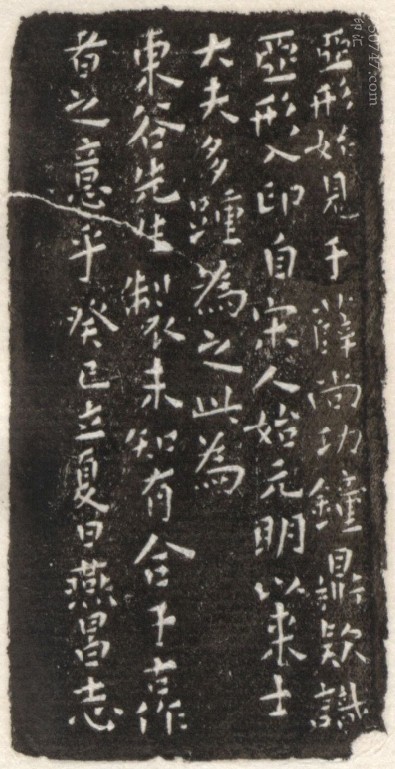 亞形始見于薛尚功鐘鼎款識
亞形入印自宋人始元明以來士
大夫多踵為之此為
東谷先生製未知有合于古作
者之意乎癸巳立夏日燕昌志